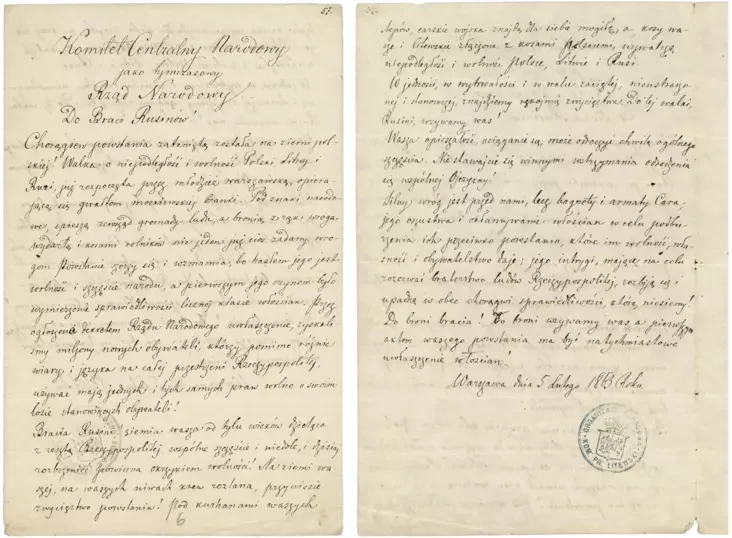 51.
Komitet Centralny Narodowy
jako tymczasowy
Rząd Narodowy
Do Braci Rusinów!
Chorągiew powstania zatknięta została na ziemi pol-
skiéj! Walka o niepodległość i wolność Polski Litwy i
Rusi, już rozpoczęta przez młodzież warszawską, opiera-
jącą się gwałtom moskiewskiéj branki. Pod znaki narodo-
we, spieszą zewsząd gromady ludu, a bronią z rąk wroga
wydartą i kosami rolników nie jeden już cios zadany wro-
gom. Powstanie szerzy się i wzmania, bo hasłem jego jest
wolność i szczęście narodu, a pierwszym jego czynem było
wymierzenie sprawiedliwości licznéj klasie włościan. Przez
ogłoszenie dekretem Rządu Narodowego uwłaszczenie, zyskali
śmy miljony nowych obywateli, którzy pomimo różnic
wiary i języka na całej przestrzeni Rzeczypospolitéj,
używać mają jednych i tych samych praw wolno o swoim
losie stanowiących obywateli!
Bracia Rusini ziemia wasza od tylu wieków dzieląca
z resztą Rzeczypospolitéj wspólne szczęście i niedolę, i dzisiaj
rozbrzmieć powinna okrzykiem wolności! Na ziemi wa-
széj, na waszych niwach krew rozlana, przyniesie
zwycięztwo powstaniu! Pod kurhanami waszych
6
stepów, carskie wojska znajdą dla siebie mogiłę, a kosy wa-
sze i Litewskie złączone z kosami Polskiemi, wywalczą
niepodległość i wolność Polsce, Litwie i Rusi.
W jedności, w wytrwałości i w walce zaciętéj, nieustraszo-
néj i stanowczéj, znajdziemy rękojmią zwycięztwa. Do téj walki,
Rusini, wzywamy was!
Wasza opieszałość, ociąganie się, może odroczyć chwilę ogólnego
szczęścia. Nie stawajcie się winnymi wstrzymania odrodzenia
się wspólnéj Ojczyzny!
Silny wróg jest przed nami, lecz bagnety i armaty Cara,
jego oszustwa i okłamywanie włościan w celu podbu-
rzenia ich przeciwko powstaniu, które im wolność, włas-
ność i obywatelstwo daje; jego intrygi, mające na celu
rozerwać braterstwo ludów Rzeczypospolitéj, rozbiją się i
upadną w obec chorągwi sprawiedliwości, którą niesiemy!
Do broni bracia! Do broni wzywamy was a pierwszym
aktem waszego powstania ma być natychmiastowe
uwłaszczenie włościan!
Warszawa dnia 5 Lutego 1863 Roku.